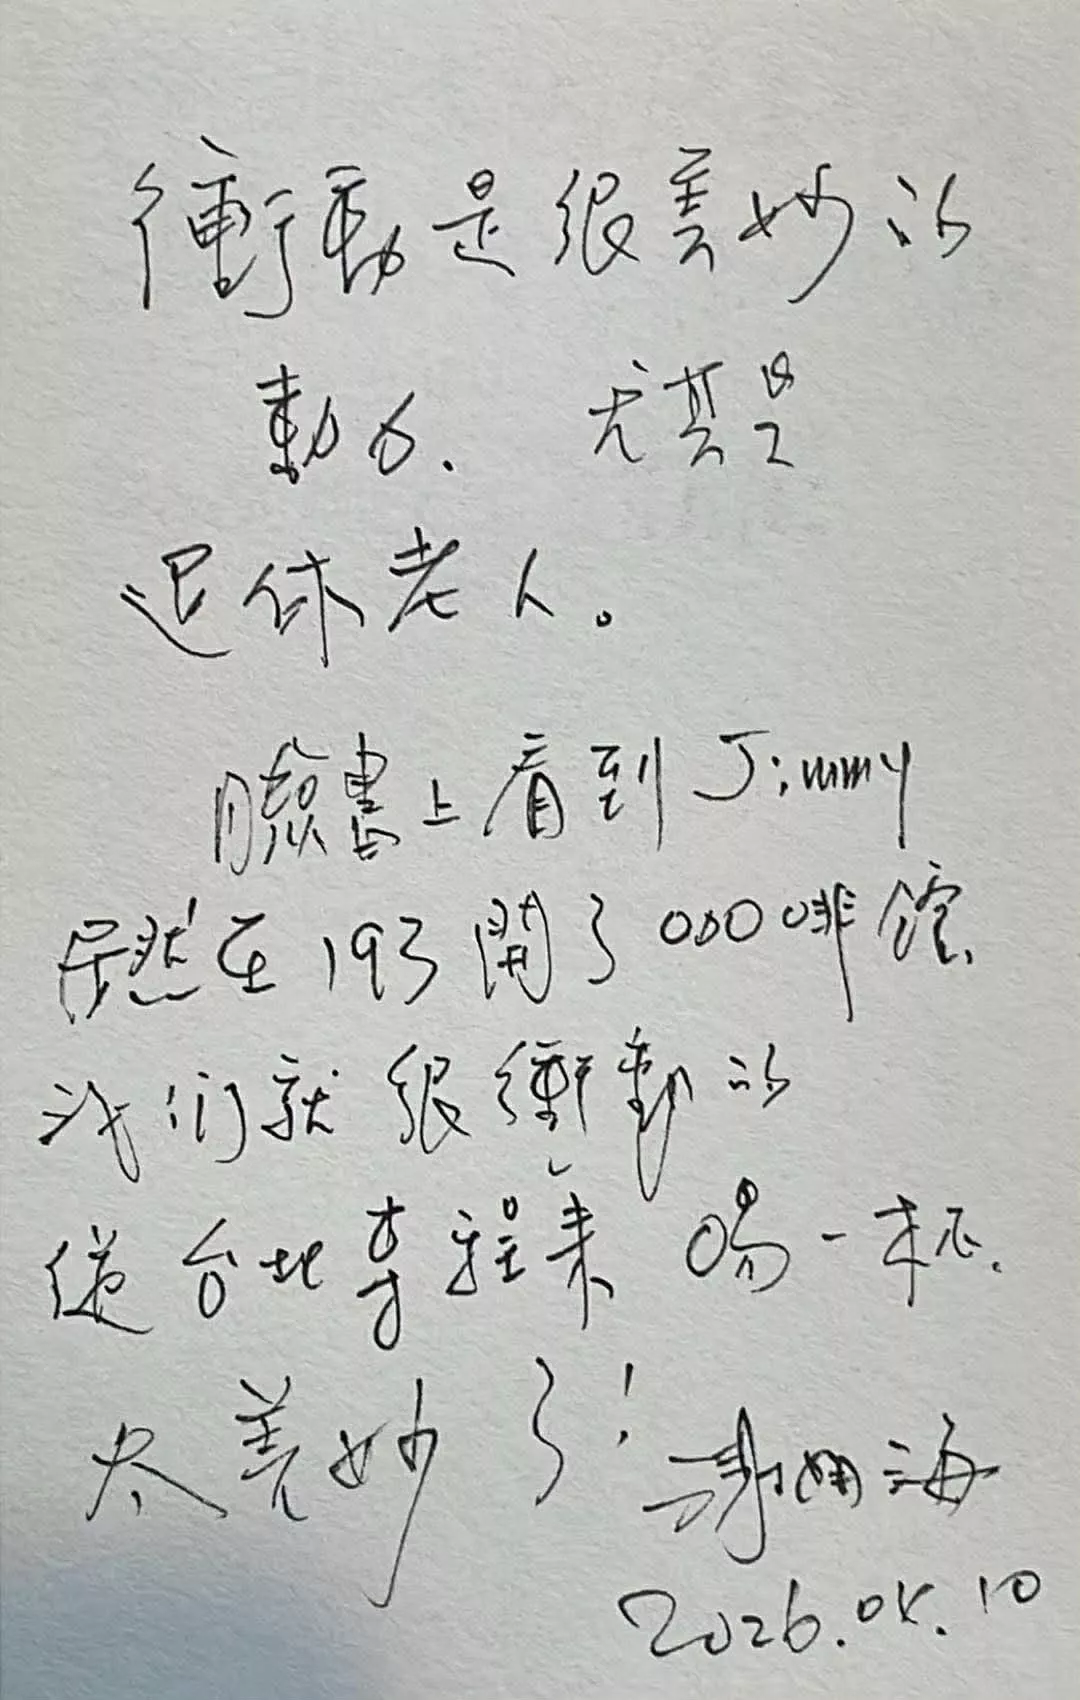 衝動是很美妙的
動力. 尤其是
退休老人。
臉書上看到 Jimmy
居然在193開了咖啡館.
我们就很衝動的
從台北專程來喝一杯.
太美妙了!
謝 海
2026.05.10